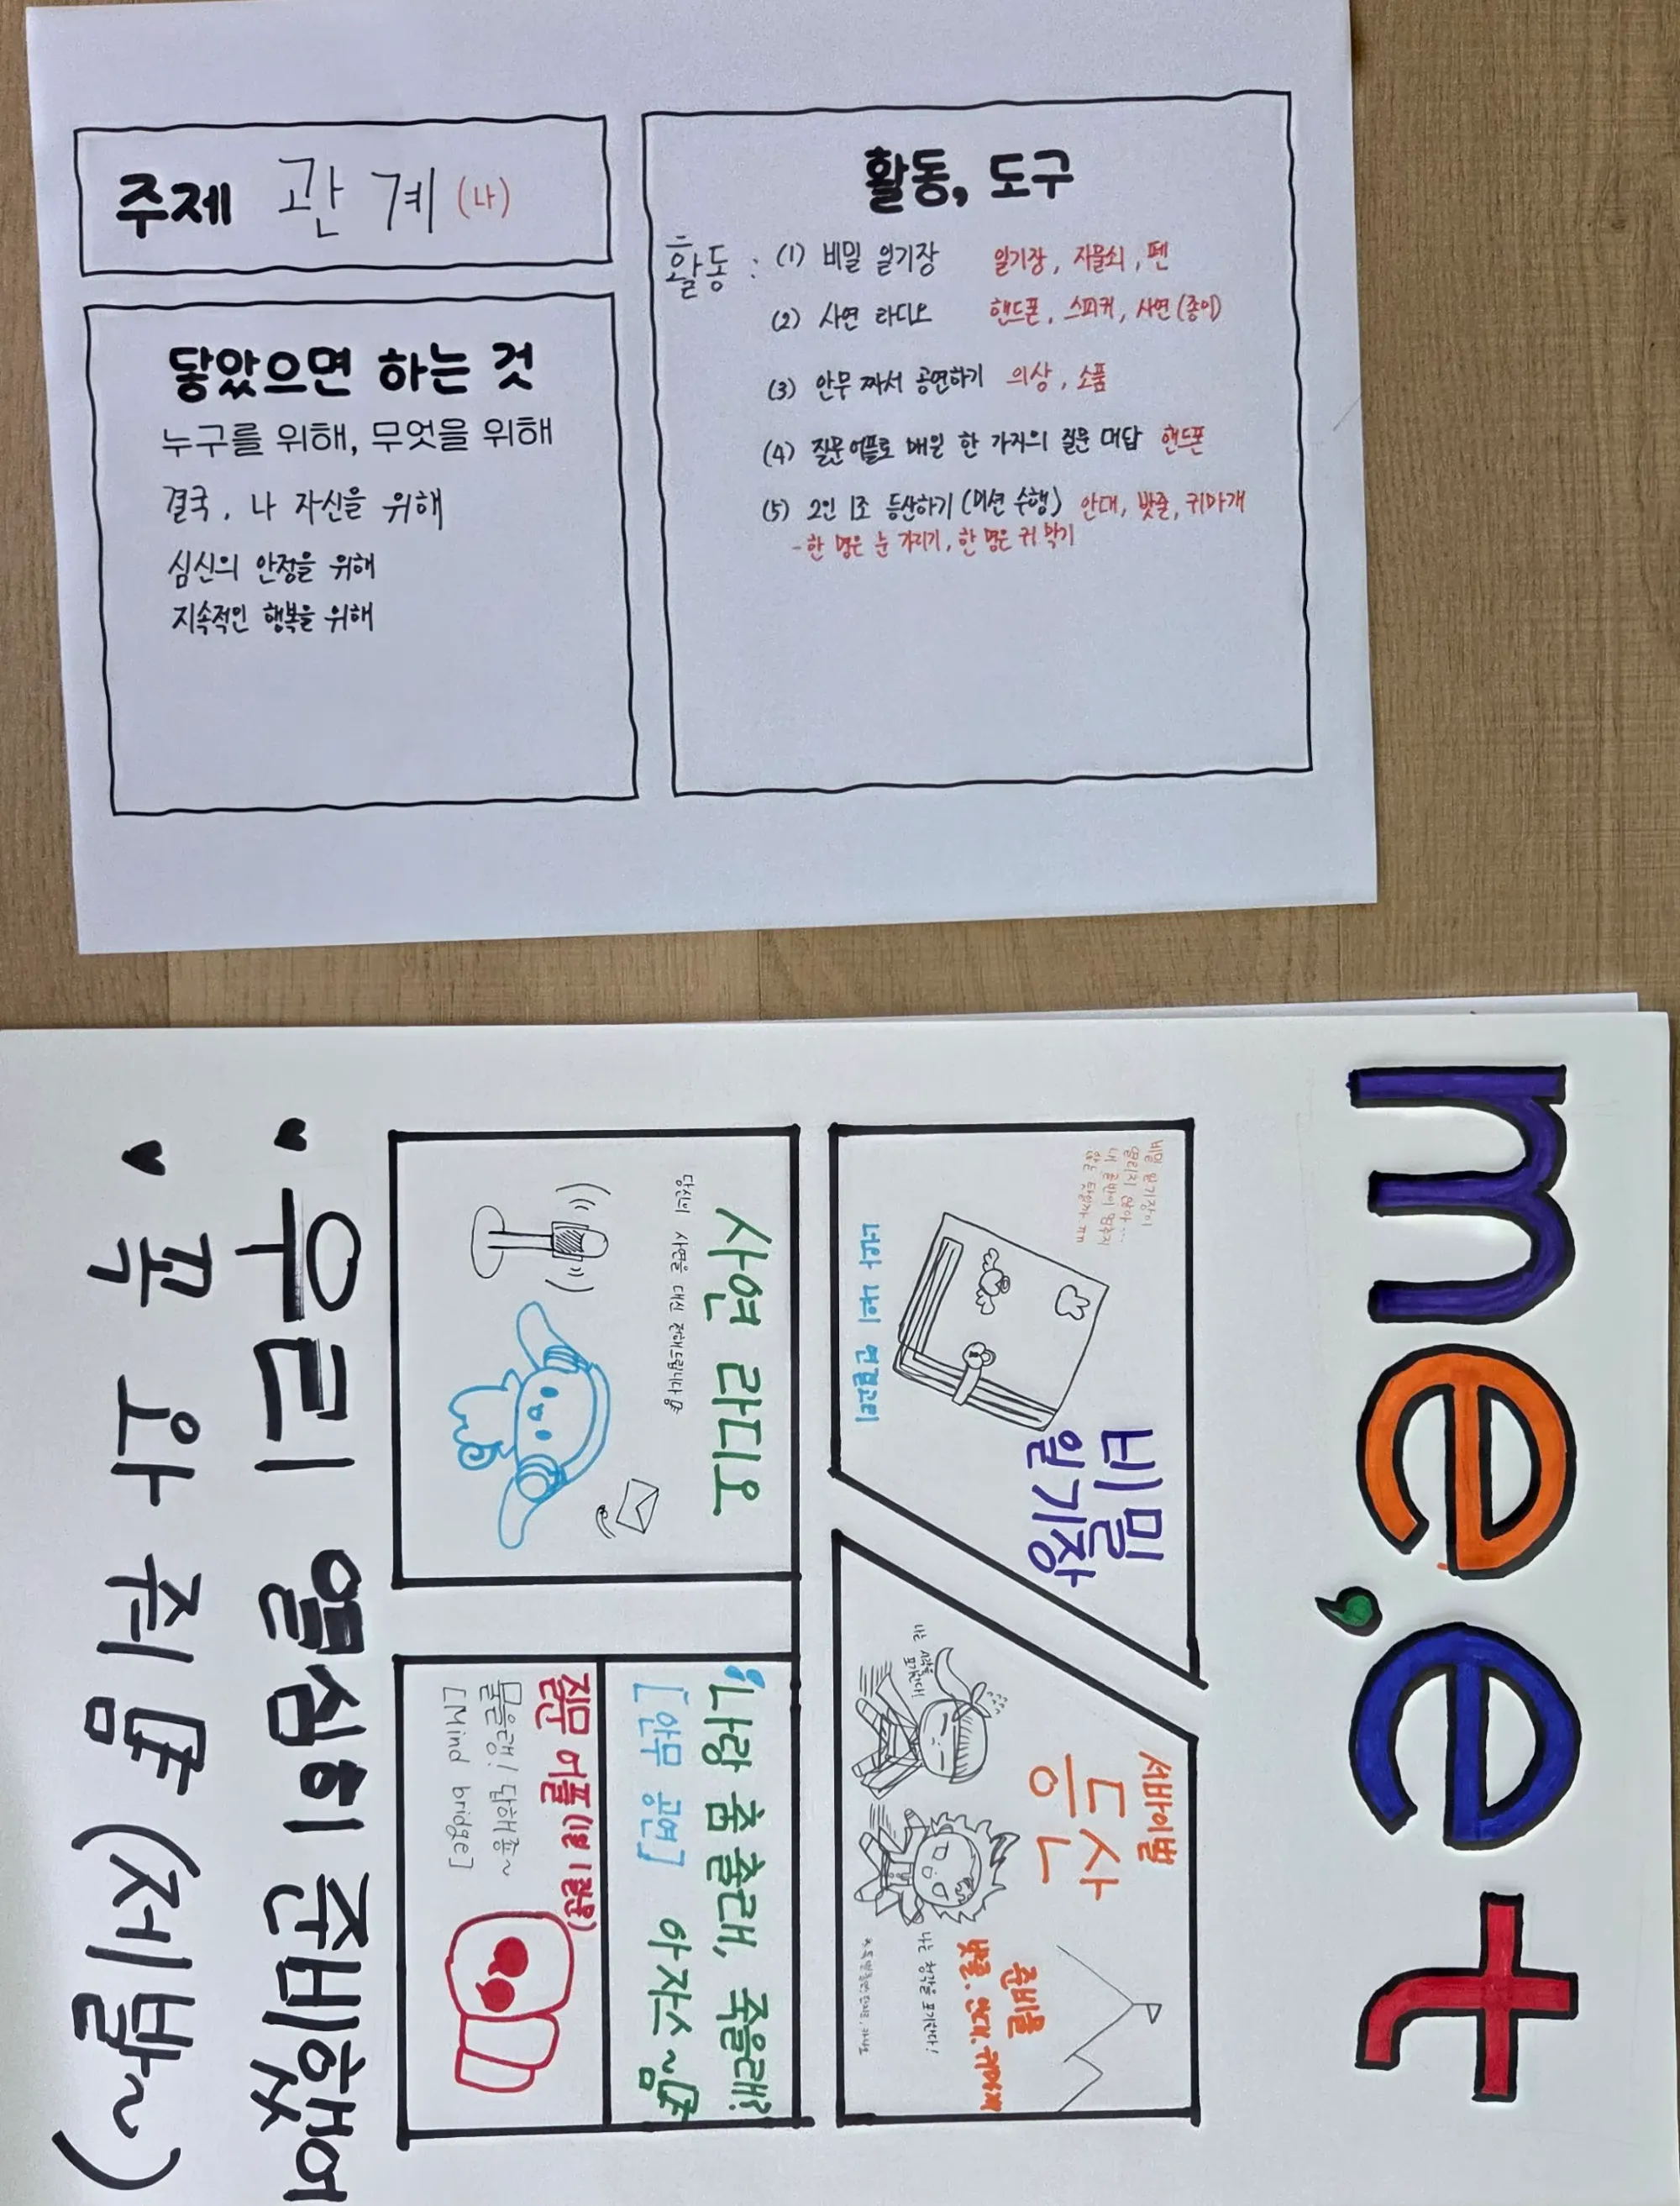 주제 관계 (나)
닿았으면 하는 것
누구를 위해, 무엇을 위해
결국, 나 자신을 위해
심신의 안정을 위해
지속적인 행복을 위해
활동, 도구
활동 : (1) 비밀 일기장 일기장, 자물쇠, 펜
(2) 사연 라디오 핸드폰, 스피커, 사연(종이)
(3) 안무 짜서 공연하기 의상, 소품
(4) 질문어플로 매일 한 가지의 질문 대답 핸드폰
(5) 2인 1조 등산하기 (미션 수행) 안대, 밧줄, 귀마개
- 한 명은 눈 가리기, 한 명은 귀 막기
me,et
비밀 일기장이
열리지 않아...
비밀
일기장
너와 나의 연결고리
서바이벌
등산
나는 시각을
포기한다!
준비물
밧줄, 안대, 귀마개
나는 청각을 포기한다!
사연 라디오
당신의 사연을 대신 전해드립니다
"나랑 춤 출래, 죽을래?"
[안무 공연] 아자스~
질문 어플(1일 1질문)
물을래! 답해죵~
[Mind bridge]
우리 열심히 준비했어
꼭 와줘 (제발~)